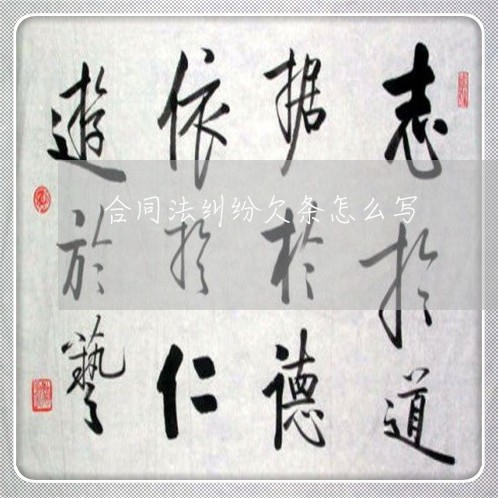 志於道
据於德
依於仁
遊於藝
合同法纠纷欠条怎么写